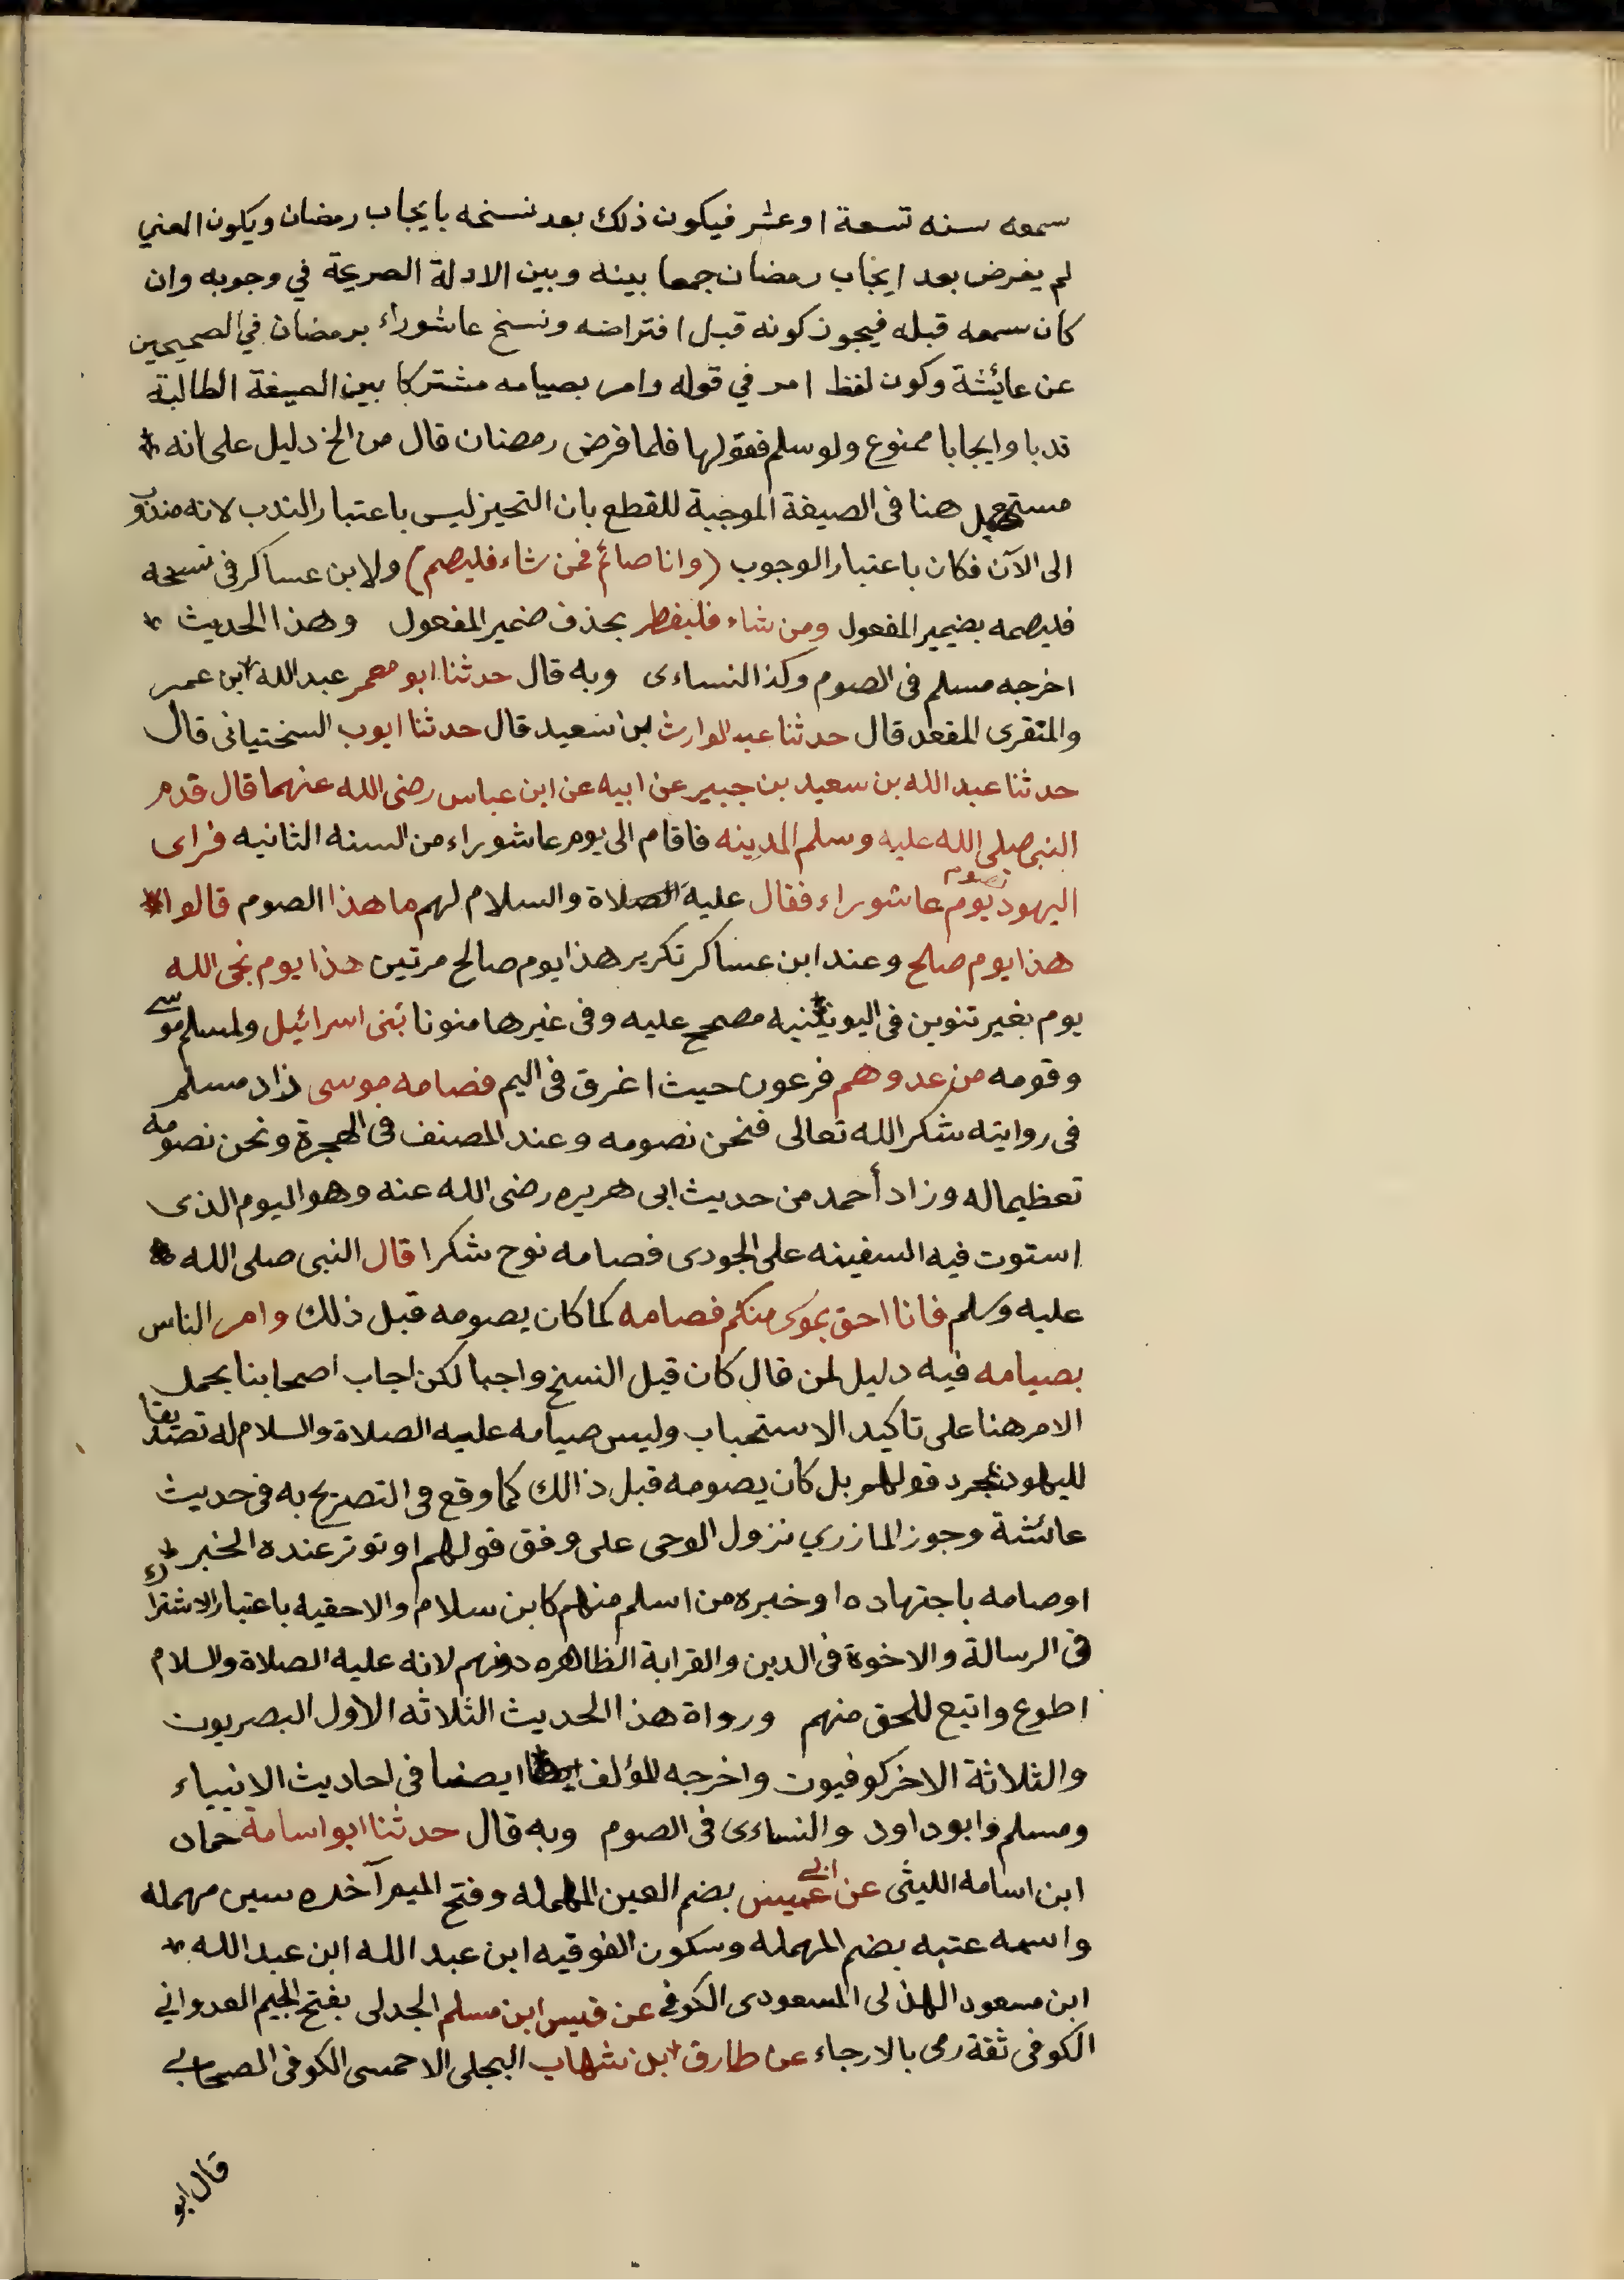 سمعه سنه تسعة اوعشر فيكون ذلك بعد نسخه بايجاب رمضان ويكون المعني
لم يفرض بعد ايجاب رمضان جمعا بينه وبين الادلة الصريحة في وجوبه وان
كان سمعه قبله فيجوز كونه قبل افتراضه ونسخ عاشوراء برمضان في الصحيحين
عن عائشة وكون لفظ امر في قوله وامر بصيامه مشتركا بين الصيغة الطالبة
ندبا وايجابا ممنوع ولو سلم فقولها فلما فرض رمضان قال من الخ دليل على انه
مستعمل هنا فى الصيغة الموجبة للقطع بان التخيير ليس باعتبار الندب لانه مندوب
الى الآن فكان باعتبار الوجوب (وانا صائم فمن شاء فليصم) ولابن عساكر فى نسخه
فليصمه بضمير المفعول ومن شاء فليفطر بحذف ضمير المفعول وهذا الحديث
اخرجه مسلم فى الصوم وكذا النساءى وبه قال حدثنا ابو معمر عبد الله ابن عمر
والمنقرى المقعد قال حدثنا عبد الوارث بن سعيد قال حدثنا ايوب السختيانى قال
حدثنا عبد الله بن سعيد بن جبير عن ابيه عن ابن عباس رضى الله عنهما قال قدم
النبى صلى الله عليه وسلم المدينه فاقام الى يوم عاشوراء من السنه الثانيه فراى
اليهود تصوم يوم عاشوراء فقال عليه الصلاة والسلام لهم ما هذا الصوم قالوا
هذا يوم صالح وعند ابن عساكر تكرير هذا يوم صالح مرتين هذا يوم نجى الله
يوم بغير تنوين فى اليونينيه مصحح عليه وفى غيرها منونا بنى اسرائيل ولمسلم موسى
وقومه من عدوهم فرعون حيث اغرق فى اليم فصامه موسى زاد مسلم
فى روايته شكرا لله تعالى فنحن نصومه وعند المصنف فى الهجرة ونحن نصومه
تعظيما له وزاد أحمد من حديث ابى هريره رضى الله عنه وهو اليوم الذى
استوت فيه السفينه على الجودى فصامه نوح شكرا قال النبى صلى الله
عليه وسلم فانا احق بموسى منكم فصامه كما كان يصومه قبل ذلك وامر الناس
بصيامه فيه دليل لمن قال كان قبل النسخ واجبا لكن اجاب اصحابنا بحمل
الامر هنا على تاكيد الاستحباب وليس صيامه عليه الصلاة والسلام له تصديقا
لليهود بمجرد قولهم بل كان يصومه قبل ذالك كما وقع فى التصريح به فى حديث
عائشة وجوز المازري نزول الوحى على وفق قولهم او تواتر عنده الخبر
اوصامه باجتهاده اوخبره من اسلم منهم كابن سلام والاحقيه باعتبار الاشتراك
فى الرسالة والاخوة فى الدين والقرابة الظاهره دونهم لانه عليه الصلاة والسلام
اطوع واتبع للحق منهم ورواة هذا الحديث الثلاثه الاول البصريون
والثلاثة الاخر كوفيون واخرجه المؤلف ايضا فى احاديث الانبياء
ومسلم وابو داود والنساءى فى الصوم وبه قال حدثنا ابو اسامة حماد
ابن اسامه الليثى عن ابي عميس بضم العين المهمله وفتح الميم آخره سين مهمله
واسمه عتبه بضم المهمله وسكون الفوقيه ابن عبد الله ابن عبد الله
ابن مسعود الهذلى المسعودى الكوفى عن قيس ابن مسلم الجدلى بفتح الجيم العدواني
الكوفى ثقة رمى بالارجاء عن طارق ابن شهاب البجلى الاحمسى الكوفى الصحابي
قال ابو